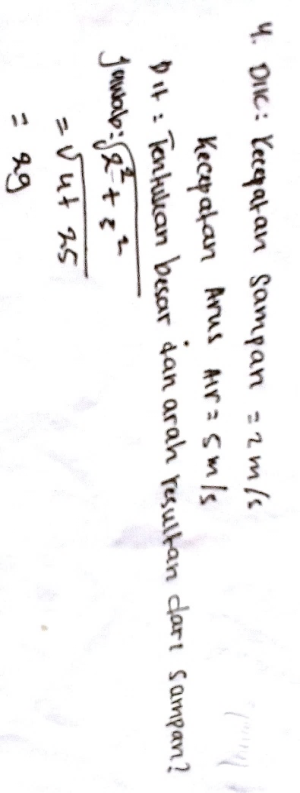 4. Dik: Kecepatan Sampan = 2 m/s
Kecepatan Arus Air = 5 m/s
Dit: Tentukan besar dan arah resultan dari sampan?
Jawab: √2² + 5²
= √4 + 25
= 29